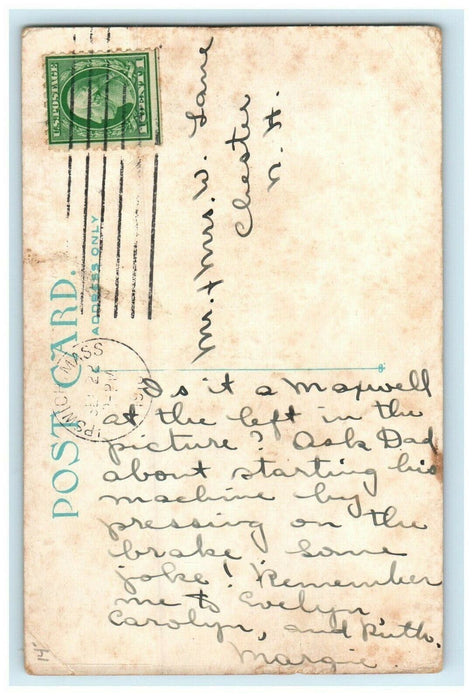 U.S. POSTAGE
1 CENT 1
POST CARD.
ADDRESS ONLY
IPSWICH MASS
22
PM
Mr. + Mrs. W. Lane
Chester
N. H.
Is it a Maxwell
at the left in the
picture? Ask Dad
about starting his
machine by
pressing on the
brake. Some
joke! Remember
me to Evelyn,
Carolyn, and Ruth.
Margie